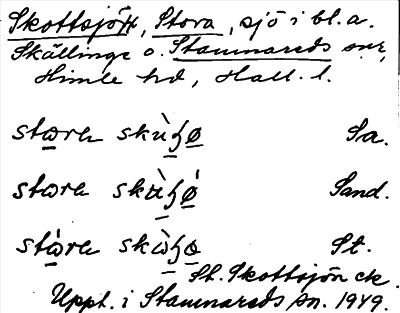 Skottsjön, Stora, sjö i bl. a.
Skällinge o. Stamnareds snr,
Himle hd, Hall. l.
stæra skùʒø Sa.
stæra skǜʒø Sand.
stæra skæ̀ʒø St.
St. Skottsjön ek.
Uppt. i Stamnareds sn. 1949.